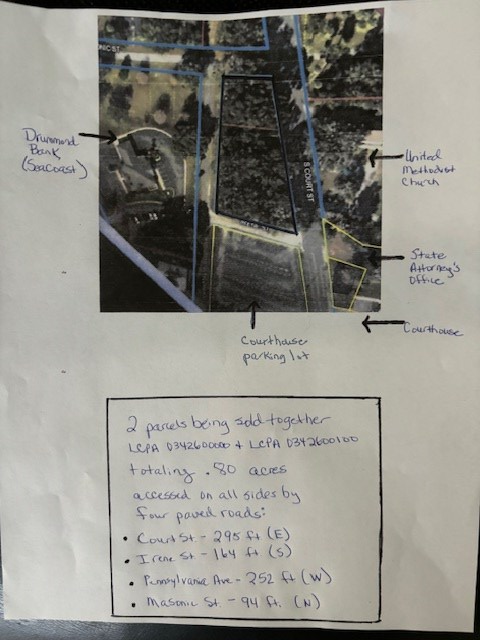 ONIC ST
Drummond
Bank
(Seacoast)
United
Methodist
Church
S COURT ST
State
Attorney's
Office
Courthouse
Courthouse
parking lot
2 parcels being sold together
LCPA 0342600000 & LCPA 0342600100
totaling .80 acres
accessed on all sides by
four paved roads:
• Court St. - 295 ft (E)
• Irene St - 164 ft (S)
• Pennsylvania Ave - 252 ft (W)
• Masonic St. - 94 ft. (N)